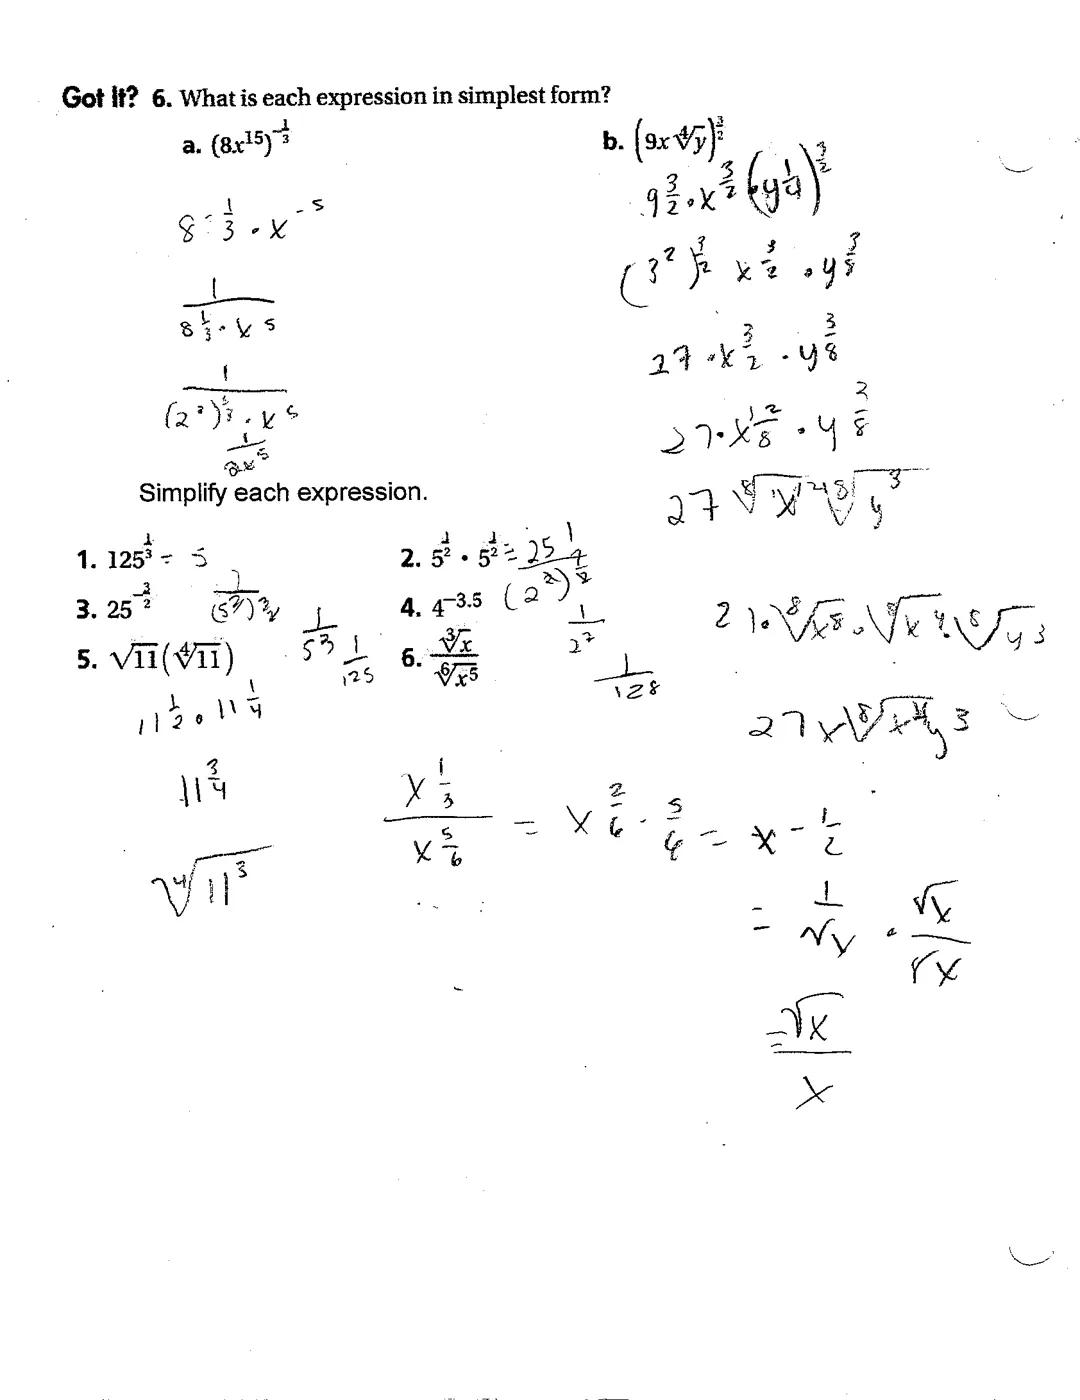 Got It? 6. What is each expression in simplest form?
a. (8x^15)^(-1/3)
8^(-1/3) · x^-5
1/(8^(1/3) · x^5)
1/((2^3)^(1/3) · x^5)
1/(2x^5)
b. (9x ∜y)^(3/2)
9^(3/2) · x^(3/2) (y^(1/4))^(3/2)
(3^2)^(3/2) x^(3/2) · y^(3/8)
27 · x^(3/2) · y^(3/8)
27 · x^(12/8) · y^(3/8)
27 ⁸√(x^12) ⁸√(y^3)
27 · ⁸√(x^8) · ⁸√(x^4) · ⁸√(y^3)
27x ⁸√(x^4 y^3)
Simplify each expression.
1. 125^(1/3) = 5
2. 5^(1/2) · 5^(1/2) = 5
3. 25^(-3/2) 1/(5^2)^(3/2) 1/5^3 1/125
4. 4^-3.5 1/(2^2)^(7/2) 1/2^7 1/128
5. √11(∜11)
11^(1/2) · 11^(1/4)
11^(3/4)
∜(11^3)
6. ∛x / ⁶√(x^5)
x^(1/3) / x^(5/6) = x^(2/6 - 5/6) = x^(-1/2)
= 1/√x · √x/√x
= √x / x